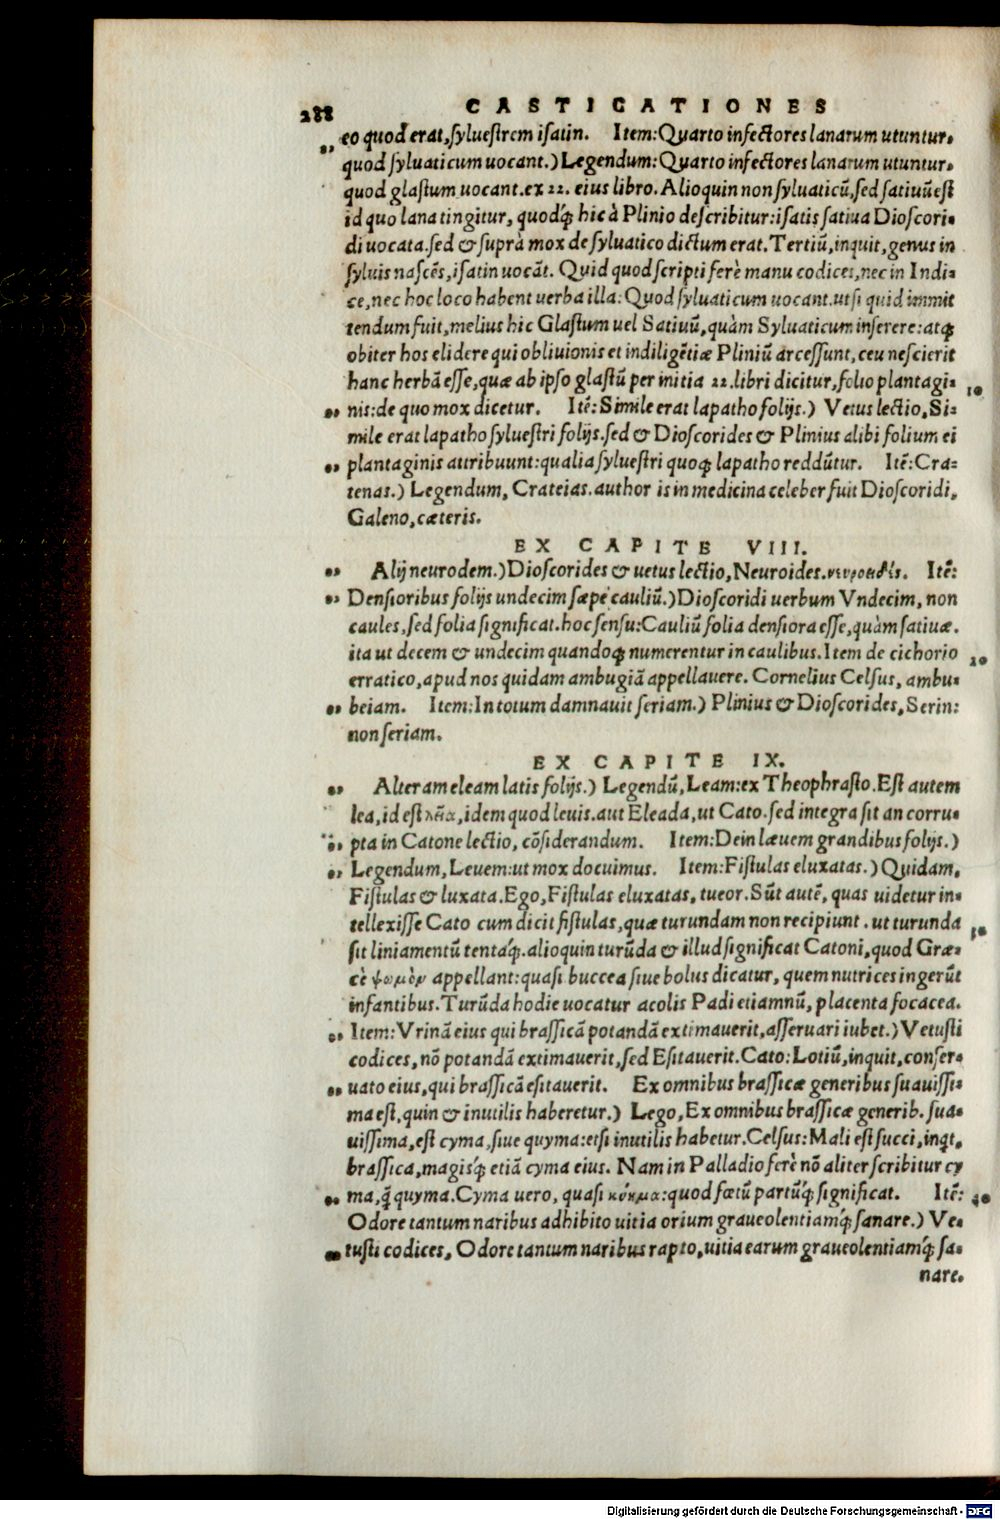 288 CASTIGATIONES
eo quod erat, syluestrem isatin. Item: Quarto infectores lanarum utuntur,
quod syluaticum uocant.) Legendum: Quarto infectores lanarum utuntur,
quod glastum uocant. ex 22. eius libro. Alioquin non syluaticũ, sed satiuũ est
id quo lana tingitur, quodq́; hic à Plinio describitur: isatis satiua Diosco­ri-
di uocata. sed & suprà mox de syluatico dictum erat. Tertiũ, inquit, genus in
syluis nascẽs, isatin uocãt. Quid quod scripti ferè manu codices, nec in Indi-
ce, nec hoc loco habent uerba illa: Quod syluaticum uocant. ut si quid immit
tendum fuit, melius hic Glastum uel Satiuũ, quàm Syluaticum inserere: atq;
obiter hos elidere qui obliuionis et indiligẽtiæ Pliniũ arcessunt, ceu nescierit
hanc herbã esse, quæ ab ipso glastũ per initia 22. libri dicitur, folio plantagi- 10
nis: de quo mox dicetur. Itẽ: Simile erat lapatho folijs.) Vetus lectio, Si-
mile erat lapatho syluestri folijs. sed & Dioscorides & Plinius alibi folium ei
plantaginis attribuunt: qualia syluestri quoq; lapatho reddũtur. Itẽ: Cra-
tenas.) Legendum, Crateias. author is in medicina celeber fuit Dioscoridi,
Galeno, cæteris.
EX CAPITE VIII.
Alij neurodem.) Dioscorides & uetus lectio, Neuroides. νευροειδές. Itẽ:
Densioribus folijs undecim sæpe cauliũ.) Dioscoridi uerbum Vndecim, non
caules, sed folia significat. hoc sensu: Cauliũ folia densiora esse, quàm satiuæ.
ita ut decem & undecim quandoq; numerentur in caulibus. Item de cichorio 20
erratico, apud nos quidam ambugiã appellauere. Cornelius Celsus, ambu-
beiam. Item: In totum damnauit seriam.) Plinius & Dioscorides, Serin:
non seriam.
EX CAPITE IX.
Alteram eleam latis folijs.) Legendũ, Leam: ex Theophrasto. Est autem
lea, id est λεῖα, idem quod leuis. aut Eleada, ut Cato. sed integra sit an corru-
pta in Catone lectio, cõsiderandum. Item: Dein læuem grandibus folijs.)
Legendum, Leuem: ut mox docuimus. Item: Fistulas eluxatas.) Quidam,
Fistulas & luxata. Ego, Fistulas eluxatas, tueor. Sũt autẽ, quas uidetur in-
tellexisse Cato cum dicit fistulas, quæ turundam non recipiunt. ut turunda 30
sit liniamentũ tentáq;. alioquin turũda & illud significat Catoni, quod Græ-
cè ψωμὸν appellant: quasi buccea siue bolus dicatur, quem nutrices ingerũt
infantibus. Turũda hodie uocatur acolis Padi etiamnũ, placenta focacea.
Item: Vrinã eius qui brassicã potandã extimauerit, asseruari iubet.) Vetusti
codices, nõ potandã extimauerit, sed Esitauerit. Cato: Lotiũ, inquit, conser-
uato eius, qui brassicã esitauerit. Ex omnibus brassicæ generibus suauissi-
ma est, quin & inutilis haberetur.) Lego, Ex omnibus brassicæ generib. sua-
uissima, est cyma, siue quyma: etsi inutilis habetur. Celsus: Mali est succi, inqt,
brassica, magisq́; etiã cyma eius. Nam in Palladio ferè nõ aliter scribitur cy
ma, q̃ quyma. Cyma uero, quasi κύημα: quod fœtũ partũq́; significat. Itẽ: 40
Odore tantum naribus adhibito uitia orium graueolentiamq́; sanare.) Ve-
tusti codices, Odore tantum naribus rapto, uitia earum graueolentiamq́; sa-
nare.
Digitalisierung gefördert durch die Deutsche Forschungsgemeinschaft - DFG